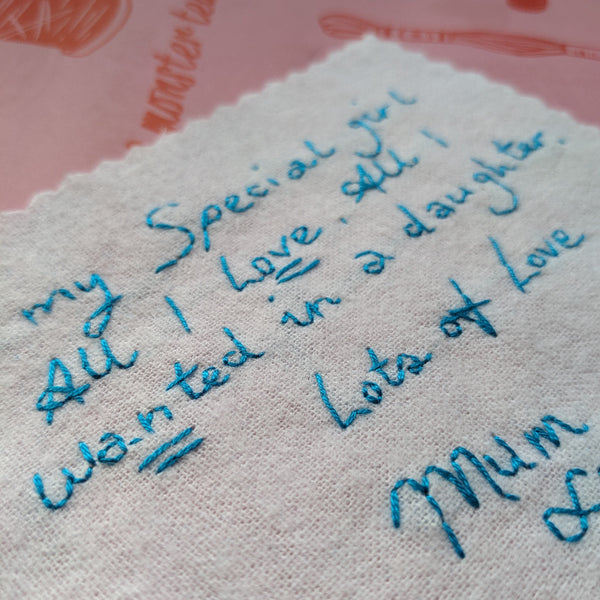 monster tea
my Special girl
All I Love. All I
wanted in a daughter.
Lots of Love
Mum